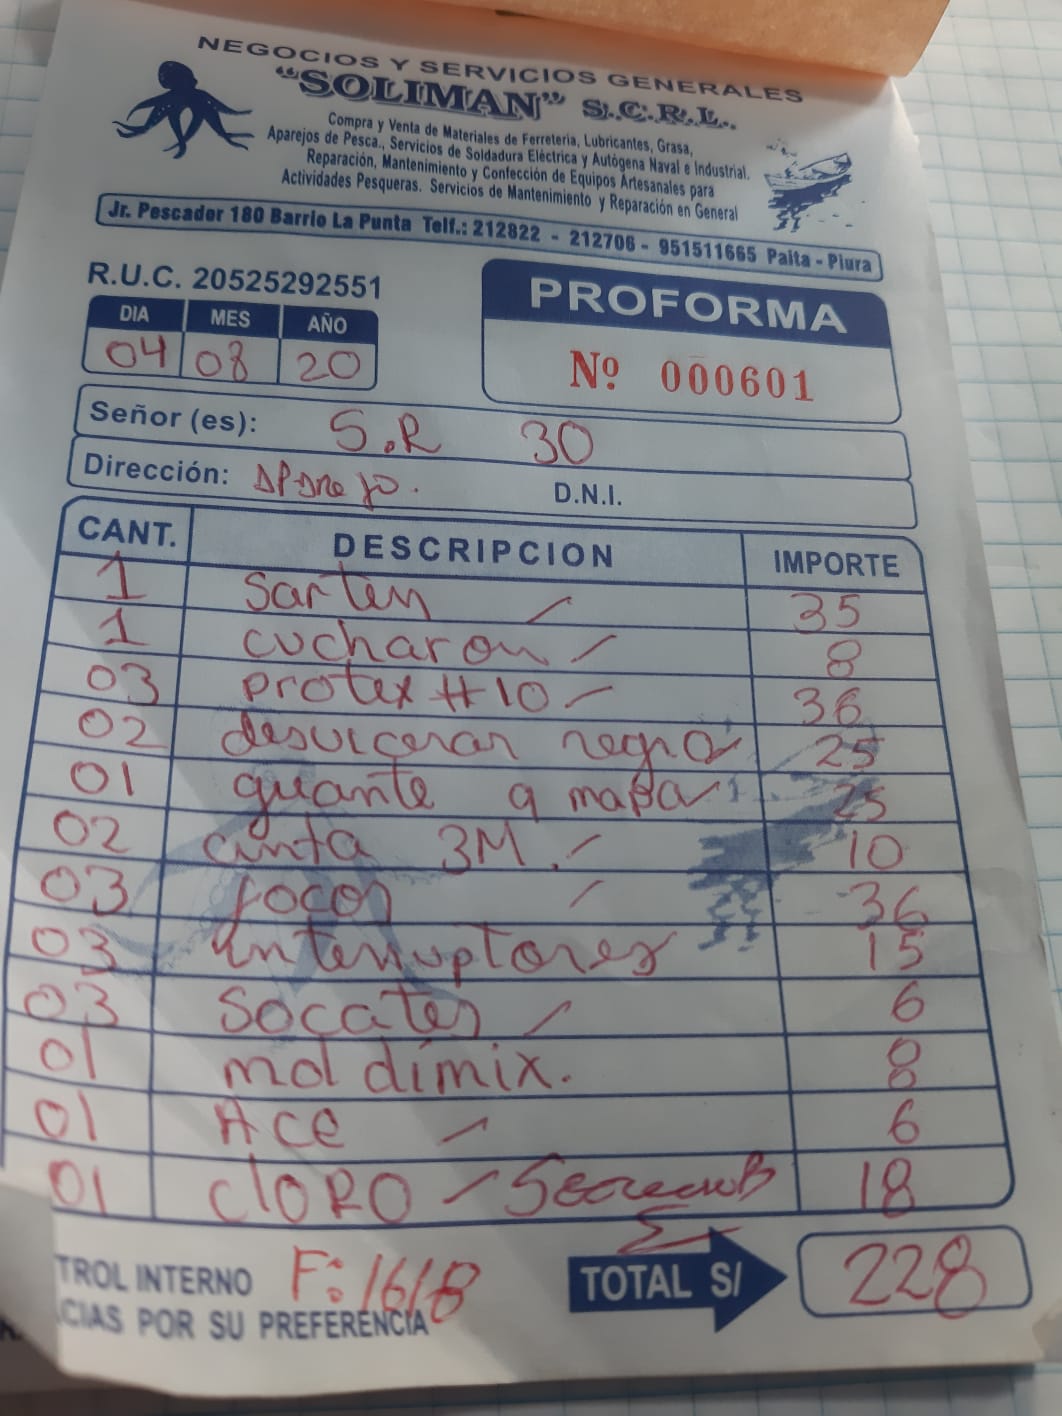 NEGOCIOS Y SERVICIOS GENERALES
"SOLIMAN" S.C.R.L.
Compra y Venta de Materiales de Ferreteria, Lubricantes, Grasa,
Aparejos de Pesca., Servicios de Soldadura Eléctrica y Autógena Naval e Industrial.
Reparación, Mantenimiento y Confección de Equipos Artesanales para
Actividades Pesqueras. Servicios de Mantenimiento y Reparación en General
Jr. Pescador 180 Barrio La Punta Telf.: 212822 - 212706 - 951511665 Paita - Piura
R.U.C. 20525292551
PROFORMA
DIA MES AÑO
04 08 20
Nº 000601
Señor (es): S.R 30
Dirección: D.N.I.
CANT. DESCRIPCION IMPORTE
1 Sarten 35
1 cucharon 8
03 protex #10 36
02 negra 25
01 guante 9 mapa 25
02 cinta 3M. 10
03 focos 36
03 Interruptores 15
03 Socates 6
01 moldimix. 8
01 Ace 6
01 CloRO 18
TROL INTERNO F: 1618 TOTAL S/ 228
CIAS POR SU PREFERENCIA